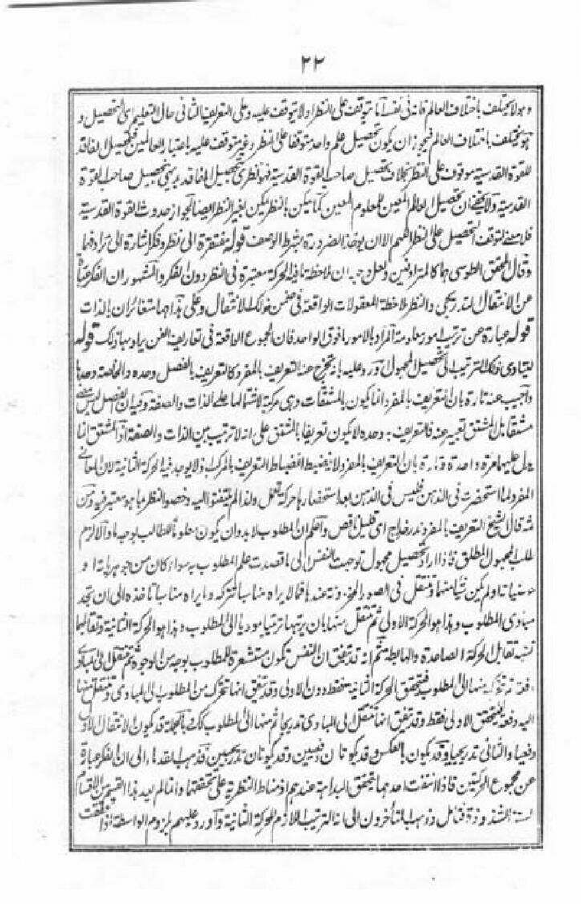 ٢٢
وهو لا يختلف باختلاف العالم فانه في نفسه اما يتوقف على النظر او لا يتوقف عليه وعلى التعريف الثاني حال التعليم اى التحصيل و
هو يختلف باختلاف العالم فيجوز ان يكون تحصيل علم واحد متوقفا على النظر وغير متوقف عليه باعتبار العالمين فتحصيل الفاقد
للقوة القدسية موقوف على النظر بخلاف تحصيل صاحب القوة القدسية فهو نظرى تحصيل الفاقد بديهى تحصيل صاحب القوة
القدسية ولا يخفى ان تحصيل العالم المعين للمعلوم المعين كما يمكن بالنظر يمكن بغير النظر ايضا لجواز حدوث القوة القدسية
فلا معنى لتوقف التحصيل على النظر اللهم الا ان يوخذ الضرورة بشرط الوصف قوله مفتقرة الى نظر وفكر اشارة الى ترادفهما
وقال المحقق الطوسى هما كالمترادفين ولعل ملاحظة هذه الحركة معتبرة في النظر دون الفكر والمشهور ان الفكر عبارة
عن الانتقال التدريجى والنظر ملاحظة المعقولات الواقعة في ضمن ذلك الانتقال وعلى هذا هما متغائران بالذات
قوله عبارة عن ترتيب امور معلومة المراد بالامور ما فوق الواحد فان المجموع الواقعة في تعاريف الفن يراد بها ذلك قوله
ليتادى ذلك الترتيب الى تحصيل المجهول اورد عليه بانه يخرج عنه التعريف بالمفرد كالتعريف بالفصل وحده والخاصة وحدها
واجيب عنه تارة بان التعريف بالمفرد انما يكون بالمشتقات وهى مركبة لاشتمالها على الذات والصفة
التعريف به وحده لا يكون تعريفا بالمشتق على انه لا ترتيب بين الذات والصفة اذ المشتق انما
يدل عليهما مرة واحدة وتارة بان التعريف بالمفرد لا ينضبط انضباط التعريف بالمركب اذ لا يوجد فيه الحركة الثانية لان المعانى
المفردة اذا استحضرت في الذهن فليس في الذهن بعد استحضارها حركة ولذا لم يلتفتوا اليه وخصوا النظر بما هو معتبر فيه ومن
ثمه قال الشيخ التعريف بالمفرد نزر خداج اى قليل ناقص واعلم ان المطلوب لا بد وان يكون معلوما للطالب بوجه ما والا لزم
طلب المجهول المطلق فاذا اراد تحصيل مجهول توجهت النفس الى ما قصدت علم المطلوب به سواء كان من جوهرياته او
عرضياته ولم يكن شيئا منهما فتنتقل في الصور المخزونة عندها فما لا يراه مناسبا تتركه وما يراه مناسبا تاخذه الى ان تجد
مبادى المطلوب وهذا هو الحركة الاولى ثم تنتقل منها بان يرتبها ترتيبا موديا الى المطلوب وهذا هو الحركة الثانية وتقابلها
نسبة تقابل الحركة الصاعدة والهابطة ثم انه قد يتفق ان النفس تكون مستشعرة للمطلوب بوجه من الوجوه ثم تنتقل الى المبادى
دفعة ثم تتحرك منها الى المطلوب فيتحقق الحركة الثانية فقط دون الاولى وقد يتفق انها تتحرك من المطلوب الى المبادى وتنتقل منها
اليه دفعة فيتحقق الاولى فقط وقد يتفق انها تنتقل الى المبادى تدريجا ثم منها الى المطلوب كذلك وبالجملة قد يكون الانتقال الاول
دفعيا والثانى تدريجيا وقد يكون بالعكس وقد يكونان دفعيين وقد يكونان تدريجيين فذهب القدماء الى ان الفكر عبارة
عن مجموع الحركتين فاذا انتفت احدهما يتحقق البداهة عندهم اذ مناط النظرية على تحققهما وانما لم يعد هذا القسم من الاقسام
الستة لشذوذه فتامل وذهب المتأخرون الى انه الترتيب اللازم للحركة الثانية واورد عليهم بلزوم الواسطة اذا تحققت